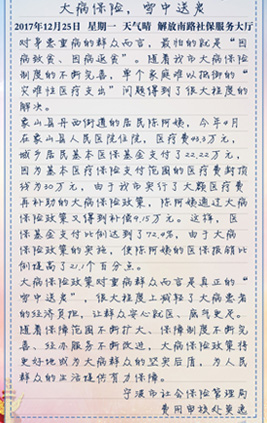 大病保险，雪中送炭
2017年12月25日 星期一 天气晴 解放南路社保服务大厅
对身患重病的群众而言，最怕的就是“因
病致贫、因病返贫”。随着我市大病保险
制度的不断完善，单个家庭难以抵御的“
灾难性医疗支出”问题得到了很大程度
的解决。
象山县丹西街道的居民陈阿姨，今年4月
在象山县人民医院住院，医疗费43.3万元，
城乡居民基本医保基金支付了22.22万元，
因为基本医疗保险支付范围的医疗费封顶
线为30万元，由于我市实行了大额医疗费
再补助的大病保险政策，陈阿姨通过大病
保险政策又得到补偿9.15万元。这样，医
保基金支付比例达到了72.4%，由于大病
保险政策的实施，使陈阿姨的医保报销比
例提高了21.1个百分点。
大病保险政策对重病群众而言是真正的“
雪中送炭”，很大程度上减轻了大病患者
的经济负担，让群众安心就医、底气更足。
随着保障范围不断扩大、保障制度不断完
善、经办服务不断改进，大病保险政策将
更好地成为大病群众的坚实后盾，为人民
群众的生活提供有力保障。
宁波市社会保险管理局
费用审核处